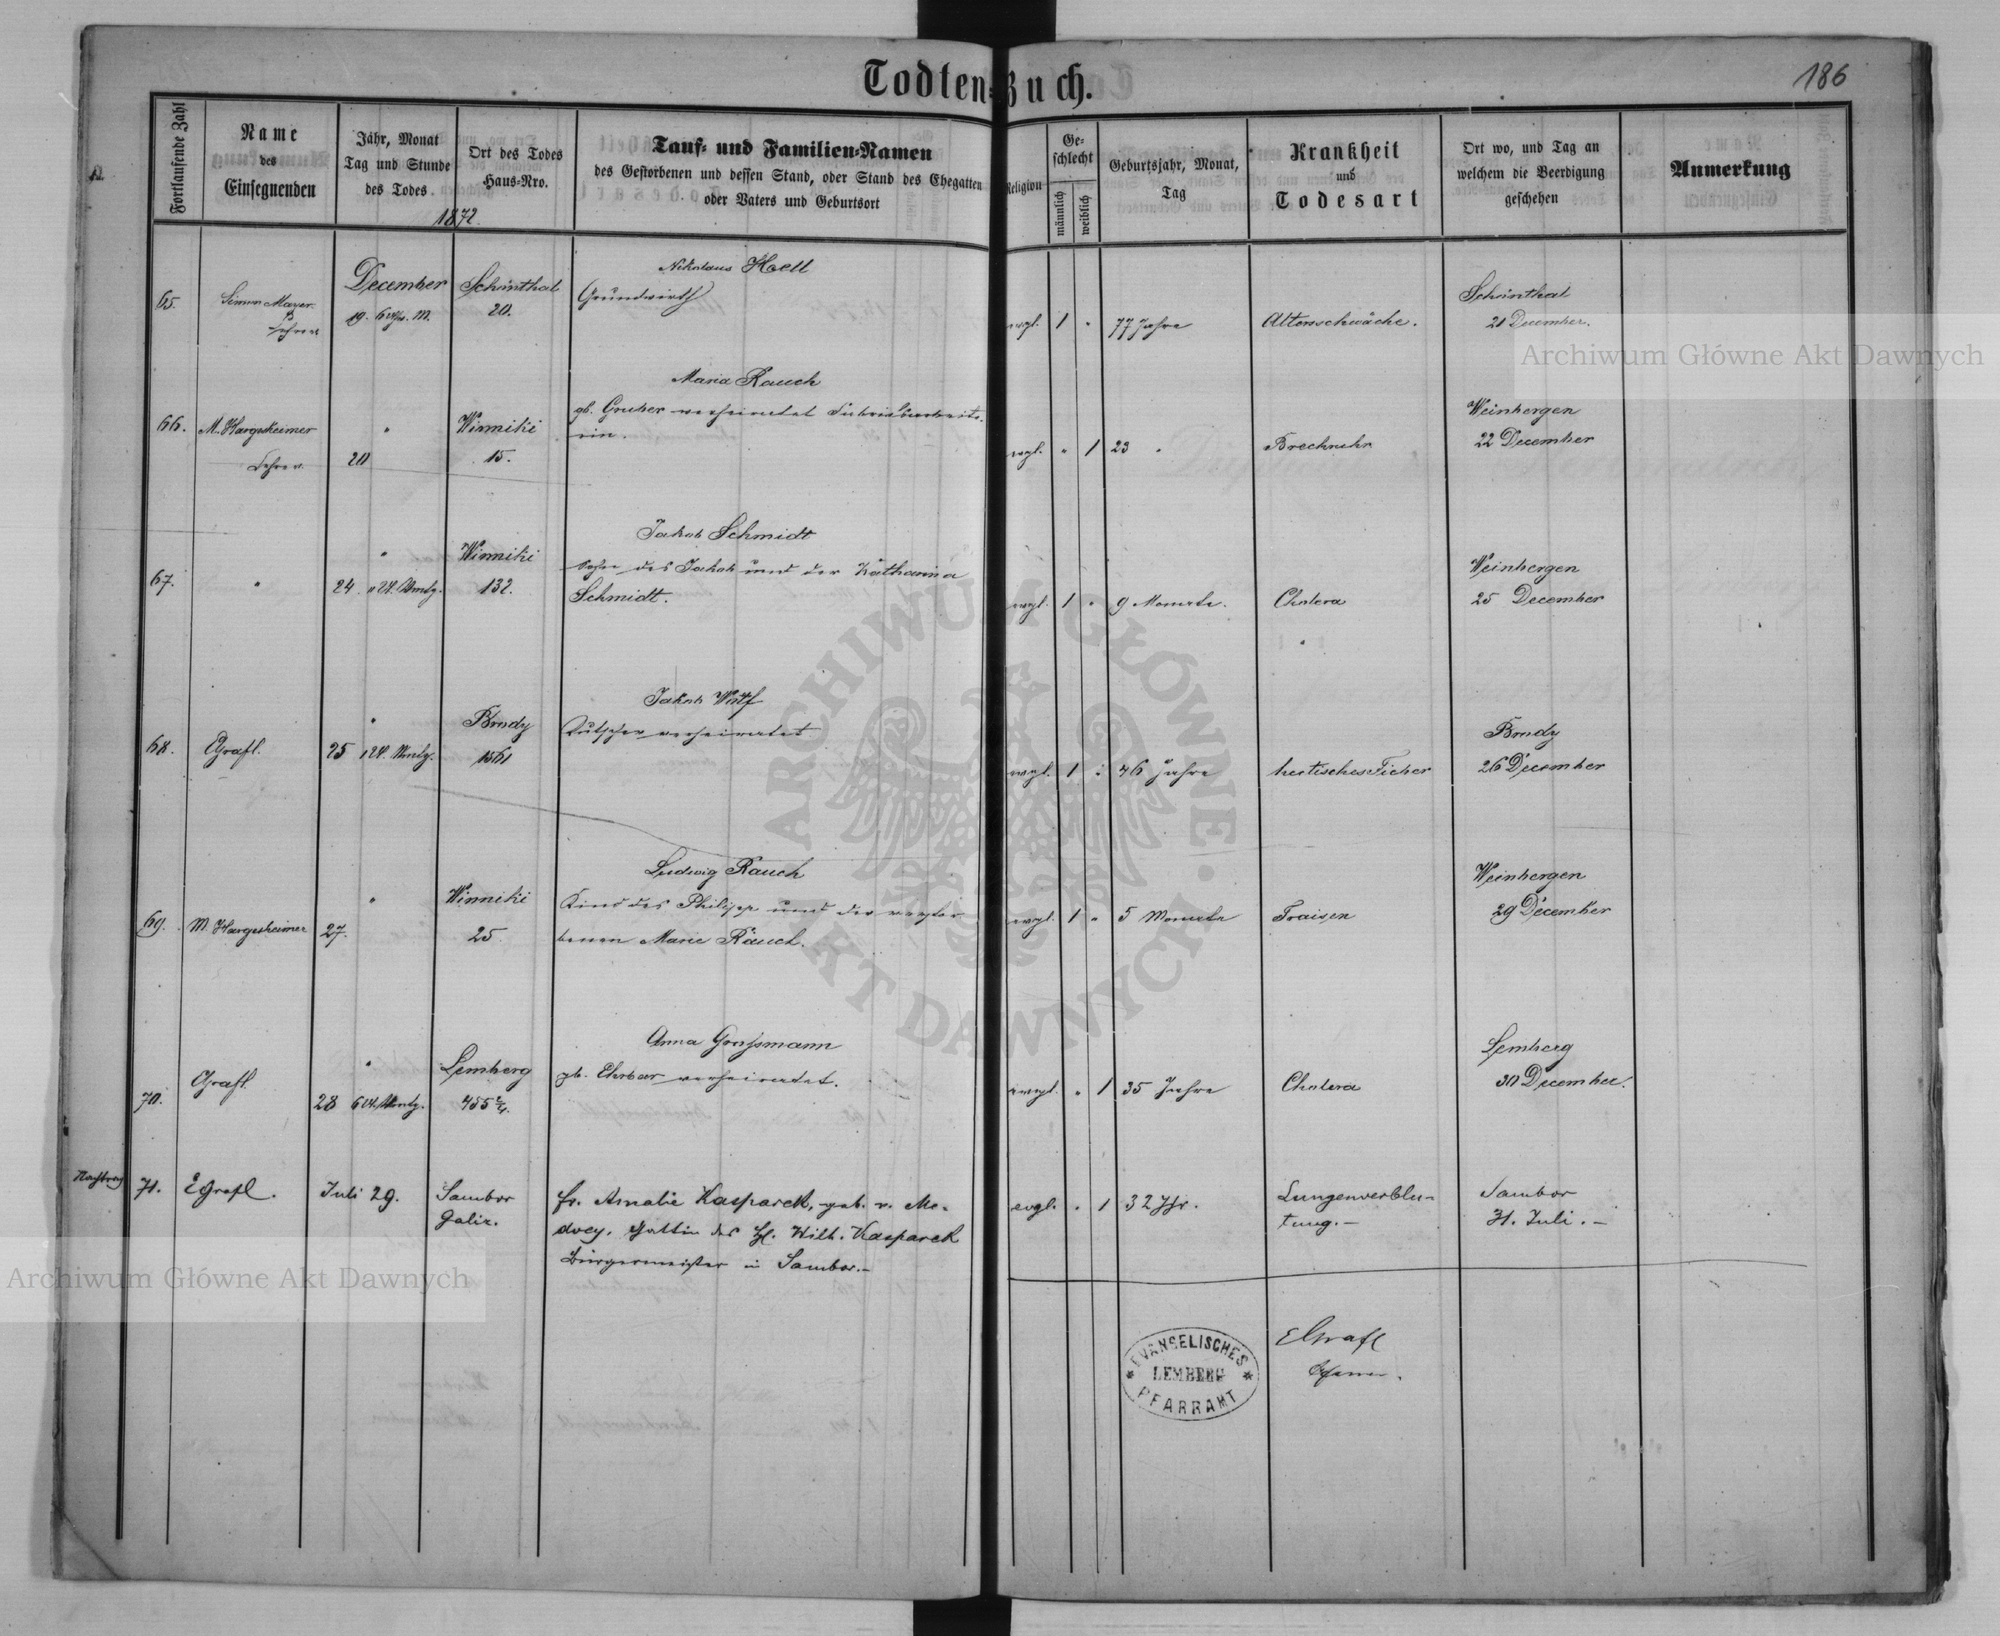 Todten-Buch.
186
Fortlaufende Zahl
Name
des
Einsegnenden
Jahr, Monat
Tag und Stunde
des Todes
1872.
Ort des Todes
Haus-Nro.
Tauf- und Familien-Namen
des Gestorbenen und dessen Stand, oder Stand des Ehegatten
oder Vaters und Geburtsort
Religion
Ge-
schlecht
männlich
weiblich
Geburtsjahr, Monat,
Tag
Krankheit
und
Todesart
Ort wo, und Tag an
welchem die Beerdigung
geschehen
Anmerkung
65.
Simon Mayer
Lehrer
December
19. 6 Uhr. M.
Schönthal
20.
Nikolaus Hoell
Grundwirth
evgl. 1 "
77 Jahre
Altersschwäche.
Schönthal
21 December.
66.
M. Hargesheimer
Lehrer
"
20
Winniki
15.
Maria Rauch
gb. Gruber verheiratet Fabriksarbeite-
rin.
evgl. " 1
23 "
Brechruhr
Weinbergen
22 December
67.
"
"
24
Winniki
132.
Jakob Schmidt
Sohn des Jakob und der Katharina
Schmidt.
evgl. 1 "
9 Monate.
Cholera
Weinbergen
25 December
68.
EGrafl.
"
25
Brody
1561
Jakob Wolf
Kutscher verheiratet
evgl. 1
46 Jahre
hectisches Fieber
Brody
26 December
69.
M. Hargesheimer
"
27.
Winniki
25
Ludwig Rauch
Kind des Philipp und der verstor
benen Marie Rauch.
evgl. 1 "
5 Monate
Fraisen
Weinbergen
29 December
70.
EGrafl.
"
28
Lemberg
455 2/4.
Anna Grossmann
gb. Ehrbar verheiratet.
evgl. " 1
35 Jahre
Cholera
Lemberg
30 December.
Nachtrag
71.
EGrafl.
Juli 29.
Sambor
Galiz.
Fr. Amalie Kasparek, geb. v. Me-
dvey, Gattin des H. Wilh. Kasparek
Bürgermeister in Sambor.-
evgl. " 1
32 Jhr.
Lungenverblu-
tung.-
Sambor
31. Juli.-
EVANGELISCHES
LEMBERG
PFARRAMT
EGrafl
Pfarrer.
Archiwum Główne Akt Dawnych
Archiwum Główne Akt Dawnych
ARCHIWUM GŁÓWNE AKT DAWNYCH